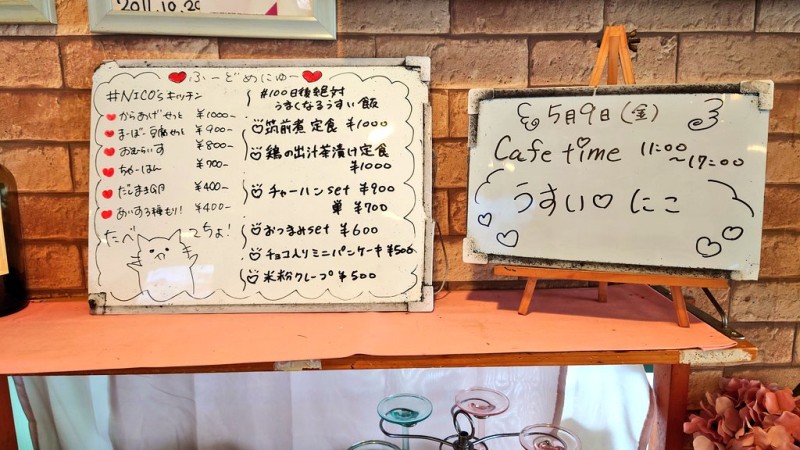 2011.10.20
ふーどめにゅー
#NICO'sキッチン
からあげせっと ¥1000-
まーぼー豆腐せっと ¥900-
おむらいす ¥800-
ちゃーはん ¥700-
だしまき ¥400-
あいす3種もり! ¥400-
たべてちょ!
#100日後絶対
うまくなるうすい飯
筑前煮定食 ¥1000
鶏の出汁茶漬け定食
¥1000
チャーハンset ¥900
単 ¥700
おつまみset ¥600
チョコ入りミニパンケーキ ¥500
米粉クレープ ¥500
5月9日(金)
Cafe time 11:00
~17:00
うすい♡ にこ